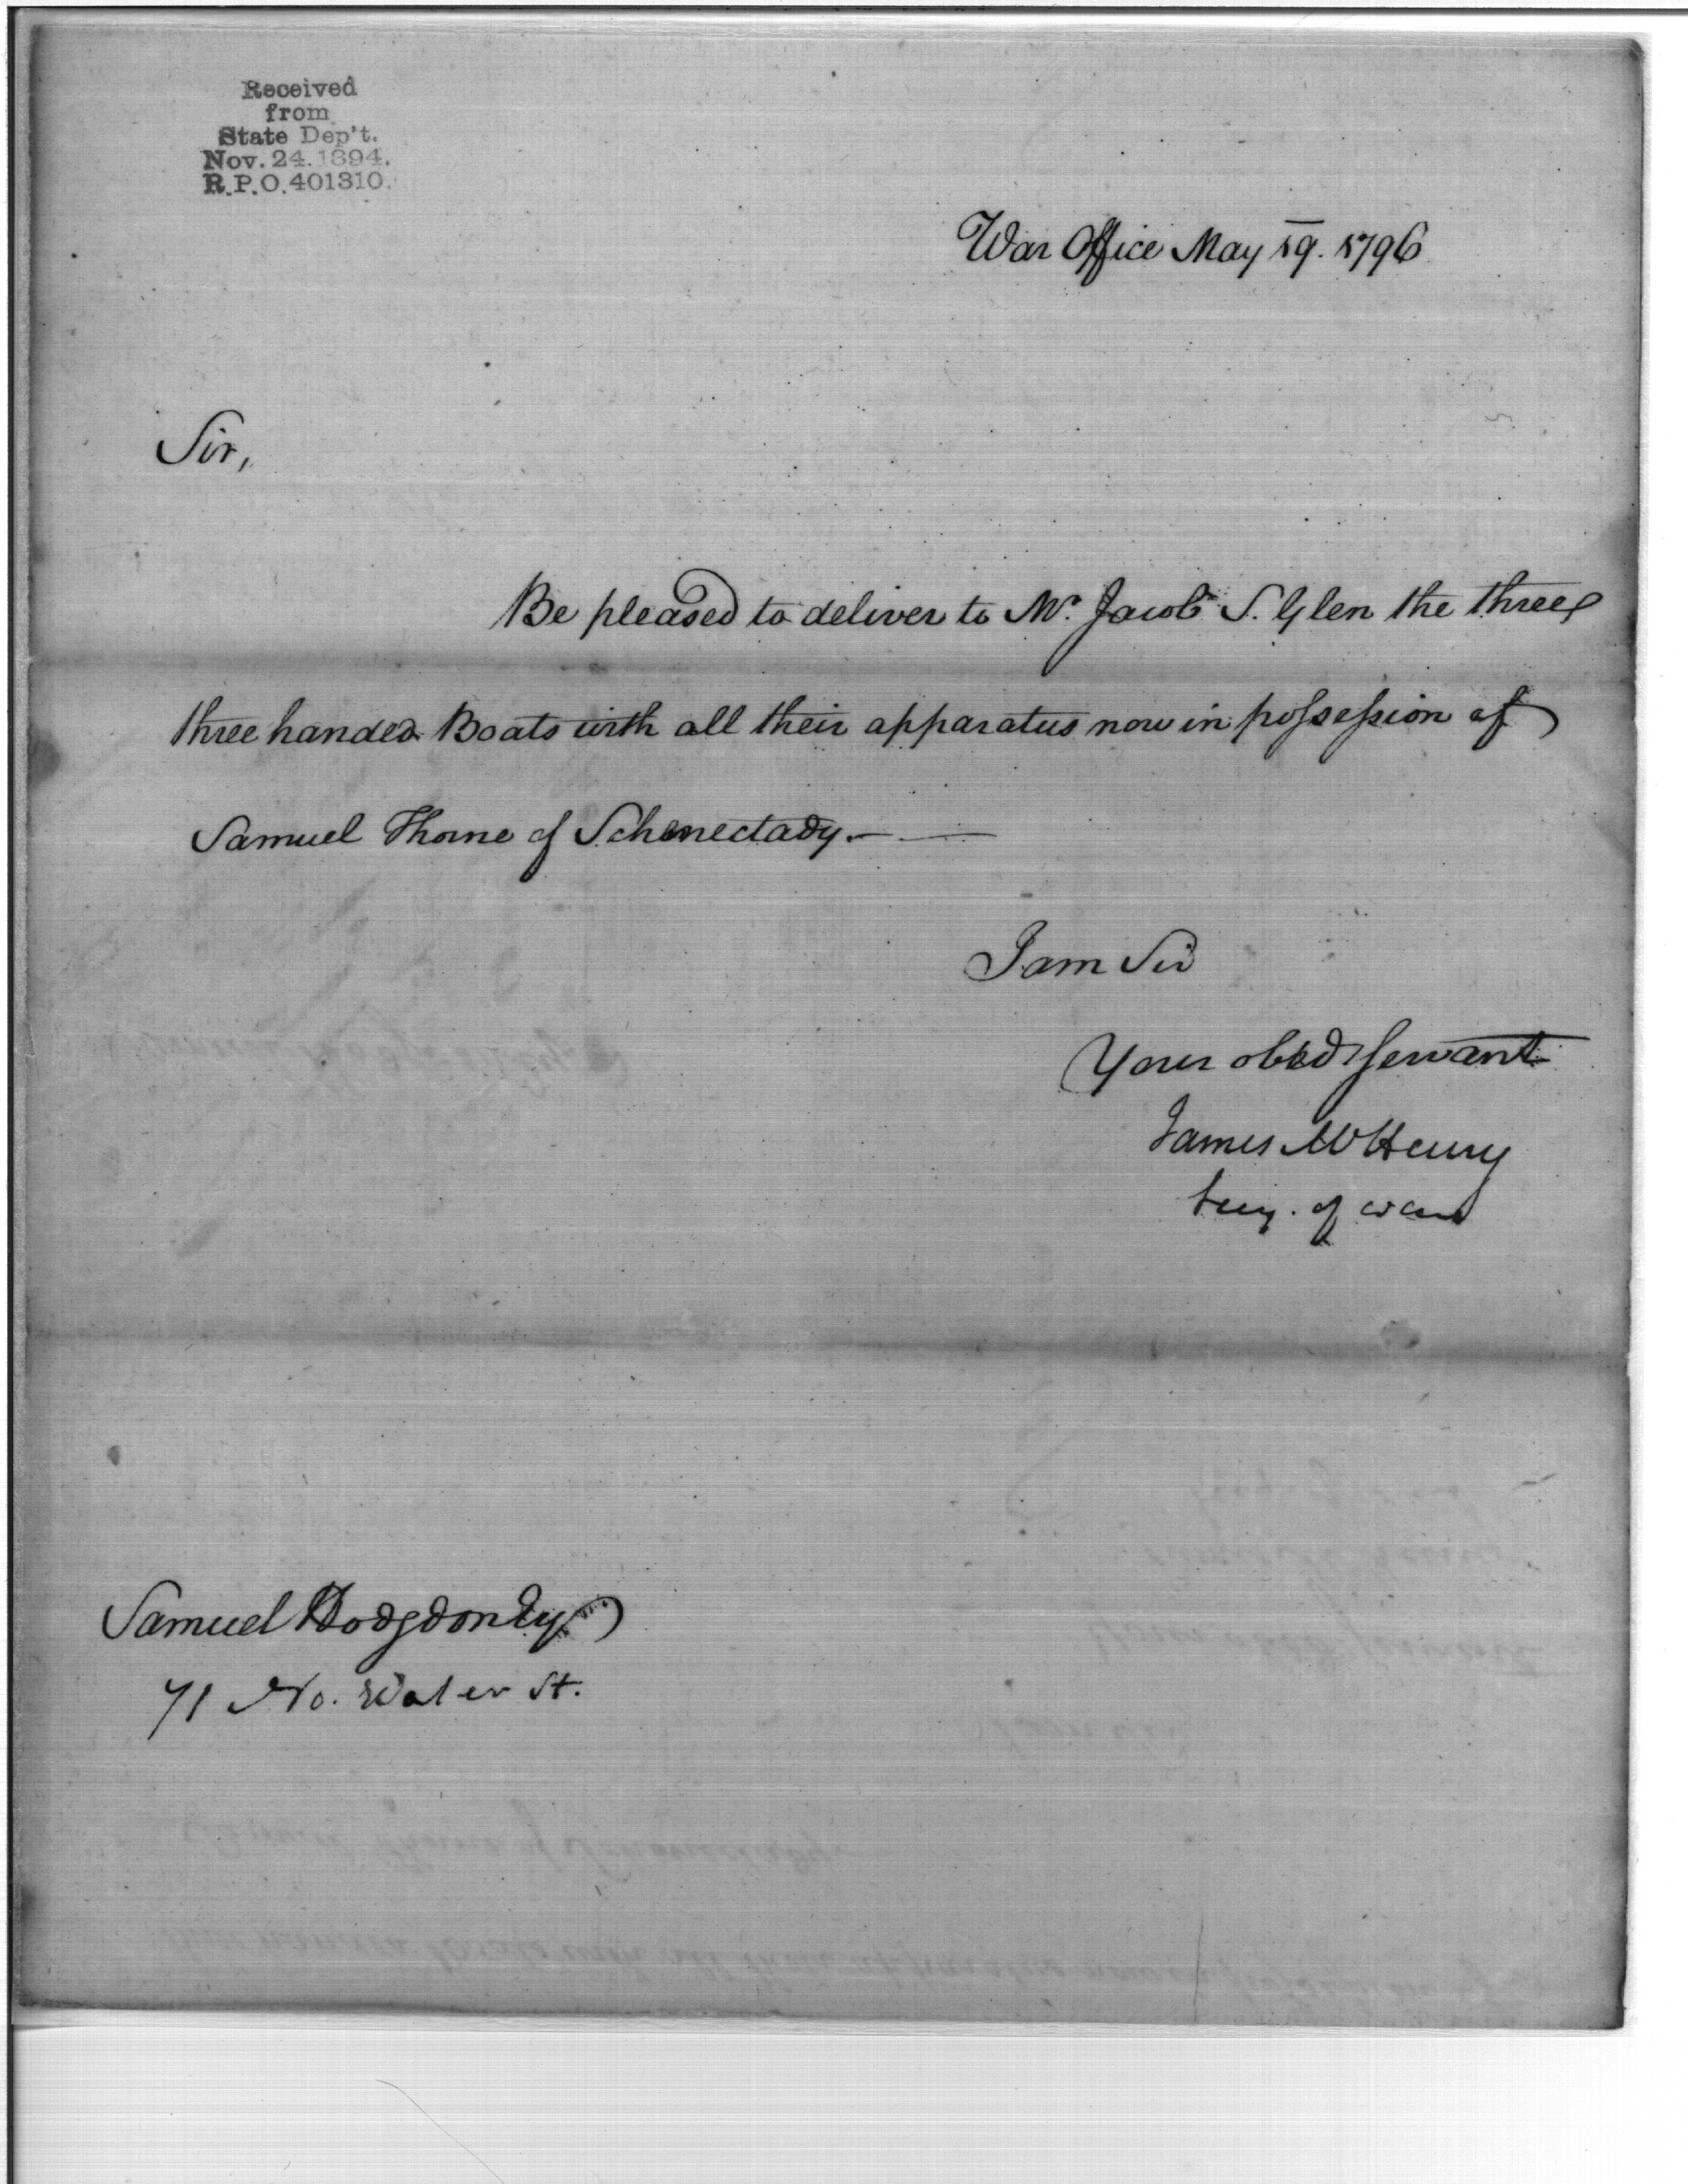 Received
from
State Dep't.
Nov. 24. 1894.
R.P.O. 401310.
War Office May 19. 1796
Sir,
Be pleased to deliver to Mr. Jacob S. Glen the three
three handed Boats with all their apparatus now in possession of
Samuel Thorne of Schenectady.
I am Sir
Your obed servant
James McHenry
Secy. of war
Samuel Hodgdon Esq
71 No. Water St.